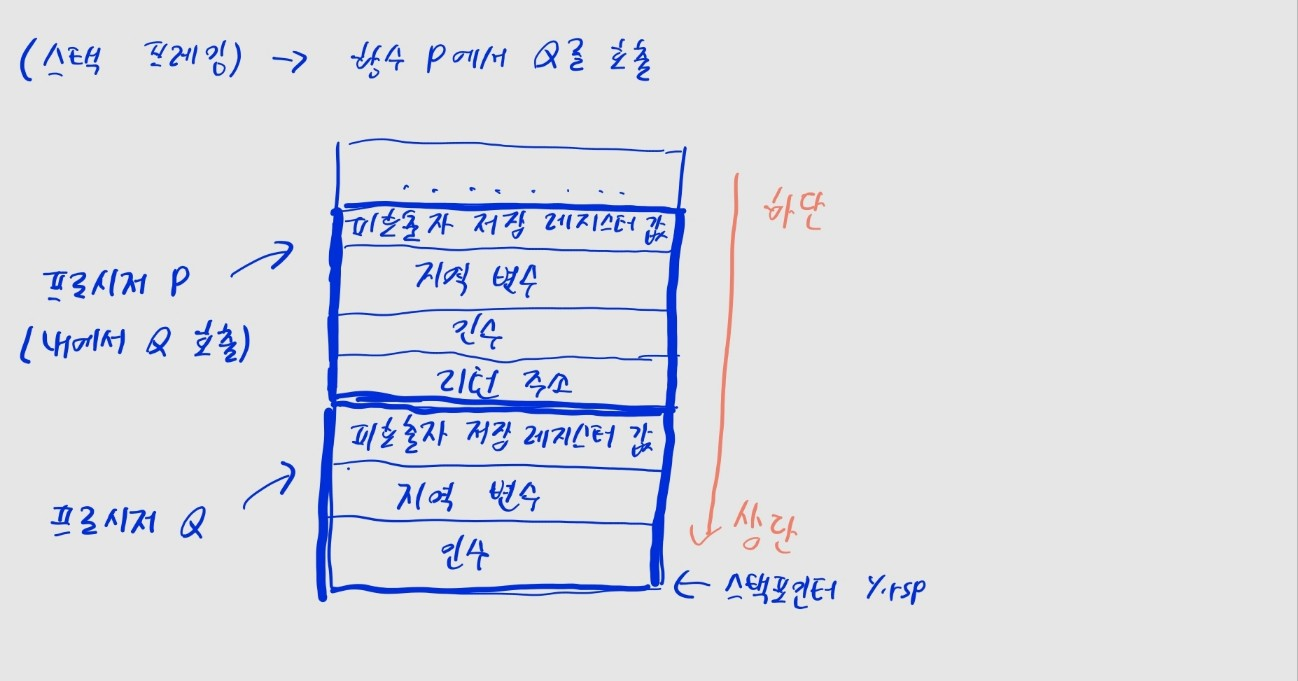 (스택 프레임) → 함수 P에서 Q를 호출
하단
피호출자 저장 레지스터 값
지역 변수
인수
리턴 주소
프로시저 P
(내에서 Q 호출)
피호출자 저장 레지스터 값
지역 변수
인수
프로시저 Q
상단
← 스택포인터 %rsp